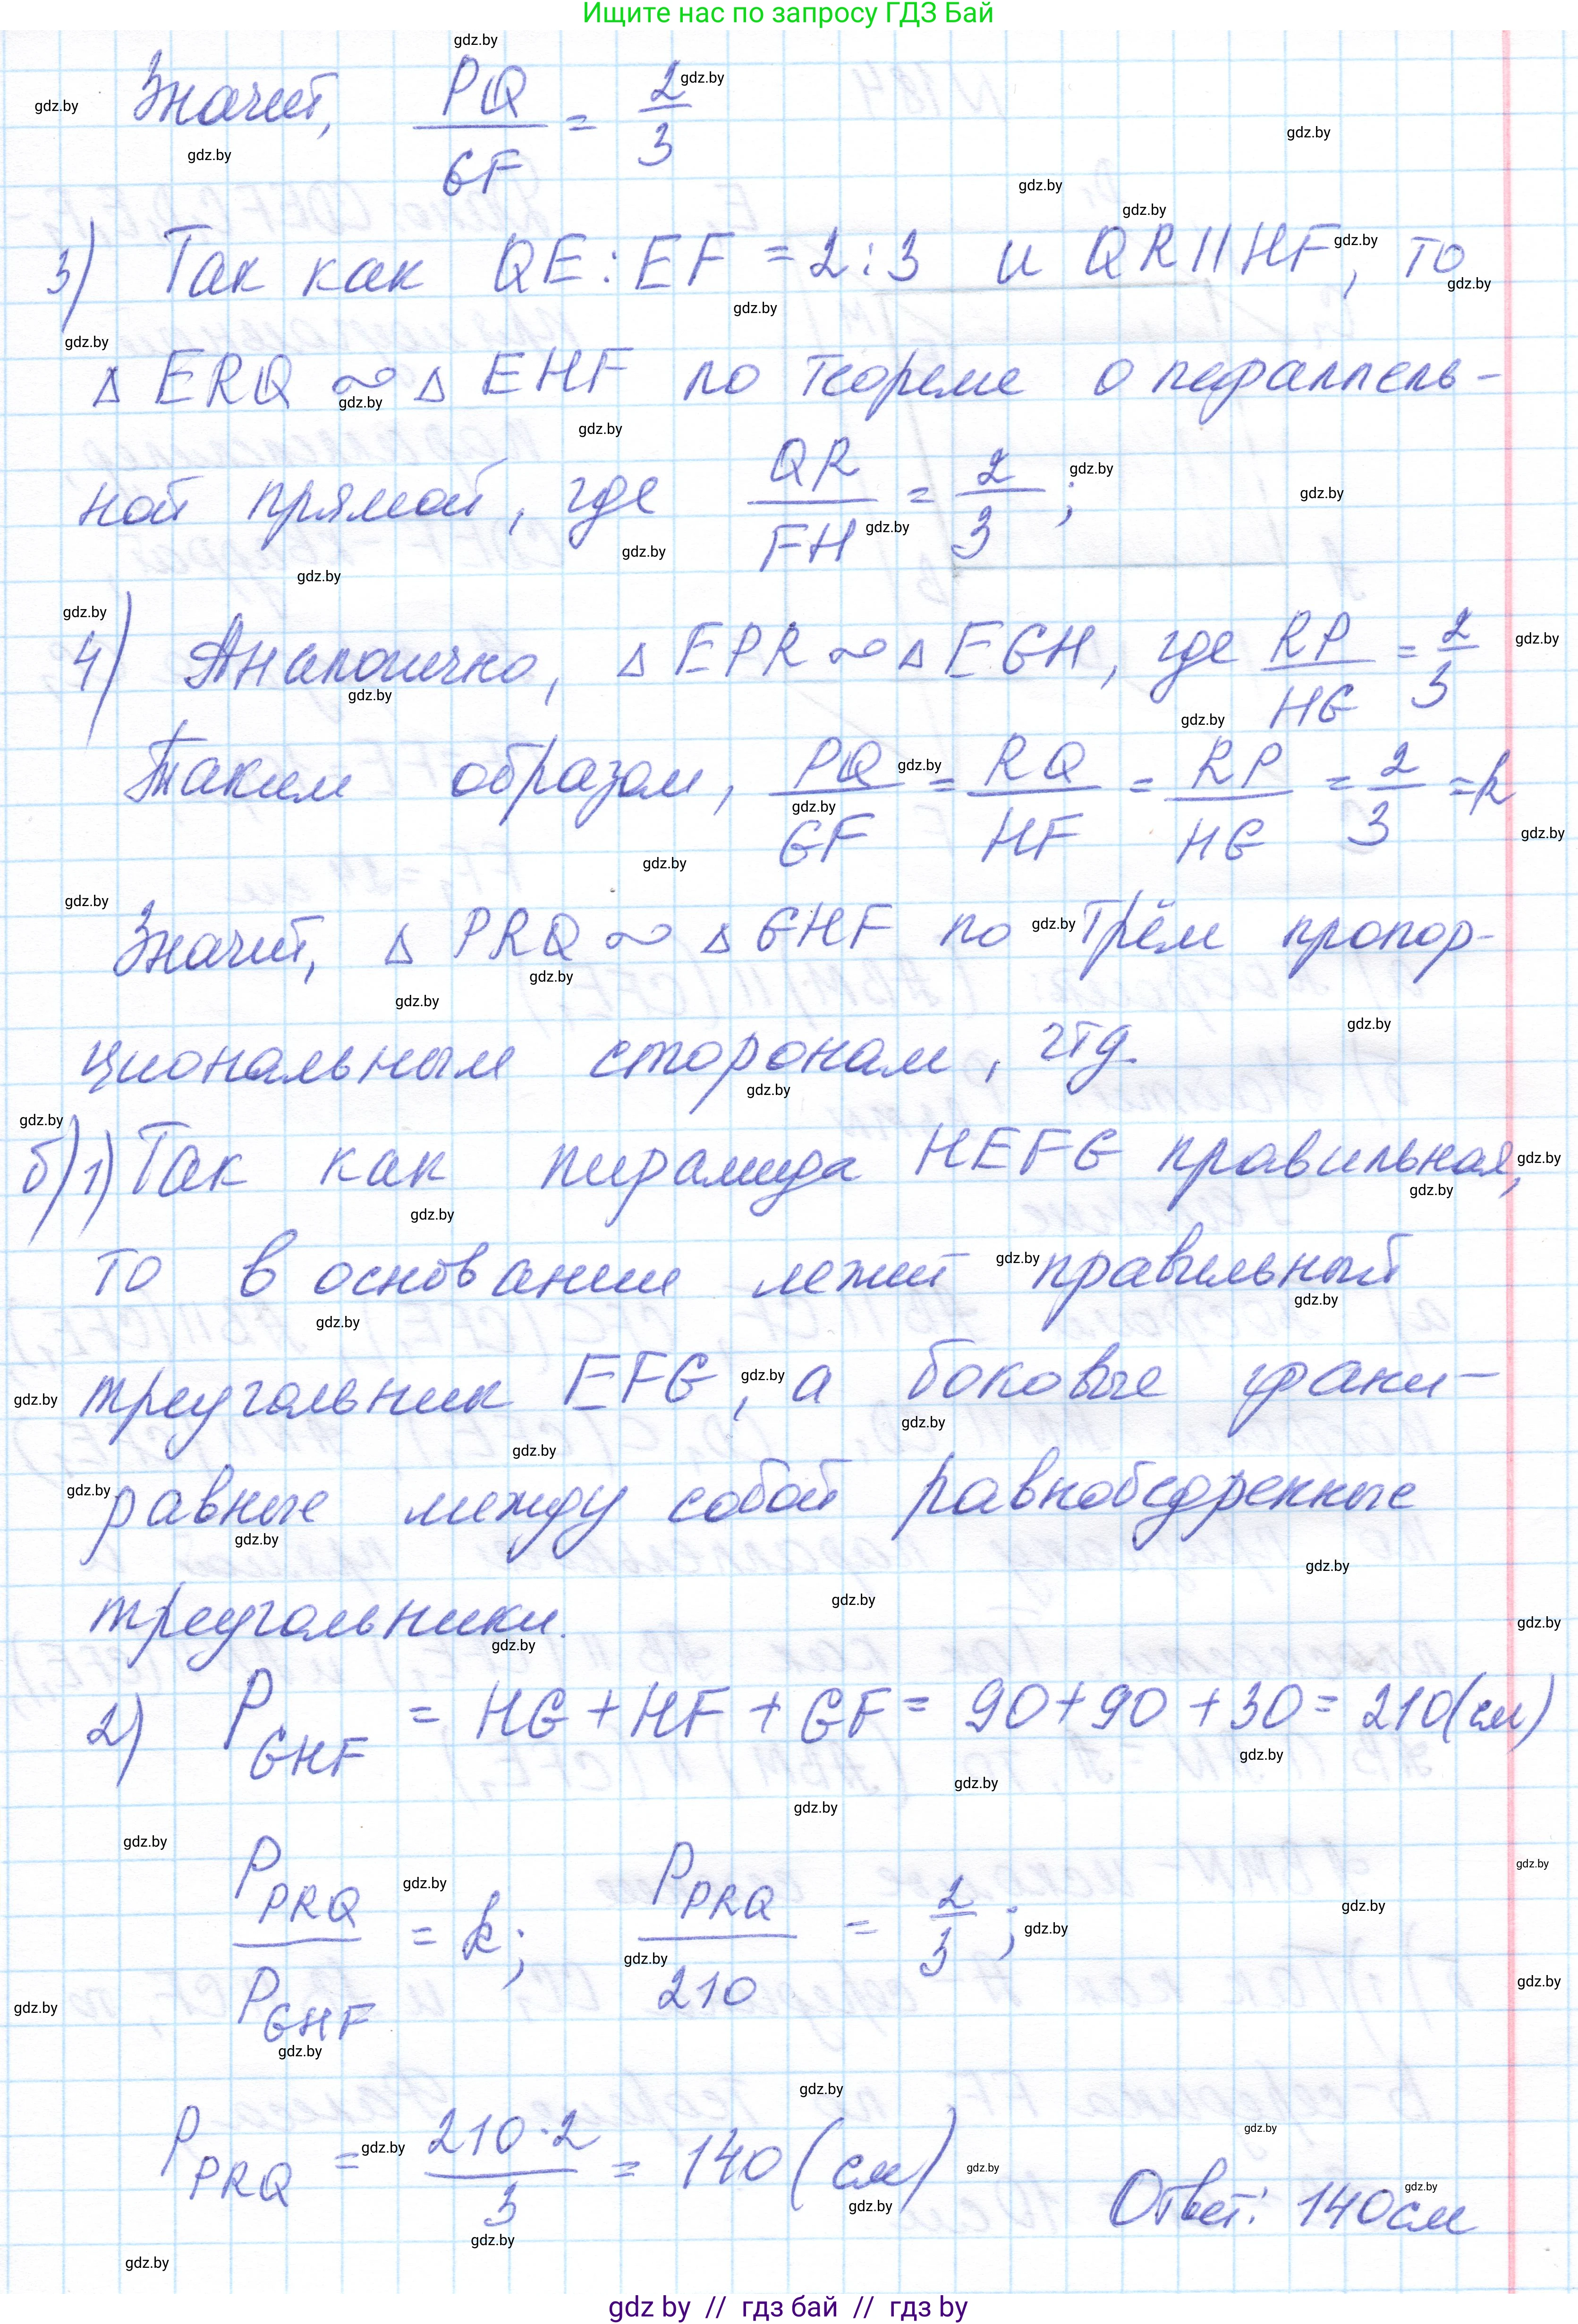 Ищите нас по запросу ГДЗ Бай
Значит, PQ/GF = 2/3
3) Так как QE : EF = 2 : 3 и QR || HF, то
Δ ERQ ∾ Δ EHF по теореме о параллель-
ной прямой, где QR/FH = 2/3 ;
4) Аналогично, Δ EPR ∾ Δ EGH, где RP/HG = 2/3
Таким образом, PQ/GF = RQ/HF = RP/HG = 2/3 = k
Значит, Δ PRQ ∾ Δ GHF по трём пропор-
циональным сторонам, чтд.
б) 1) Так как пирамида HEFG правильная,
то в основании лежит правильный
треугольник EFG, а боковые грани -
равные между собой равнобедренные
треугольники.
2) P GHF = HG + HF + GF = 90 + 90 + 30 = 210 (см)
P PRQ / P GHF = k; P PRQ / 210 = 2/3 ;
P PRQ = 210 · 2 / 3 = 140 (см) Ответ: 140 см
gdz by // гдз бай // гдз by